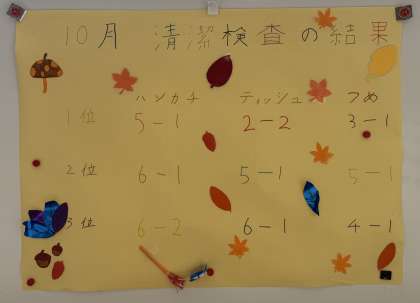 10月 清潔検査の結果
ハンカチ ティッシュ つめ
1位 5-1 2-2 3-1
2位 6-1 5-1 5-1
3位 6-2 6-1 4-1